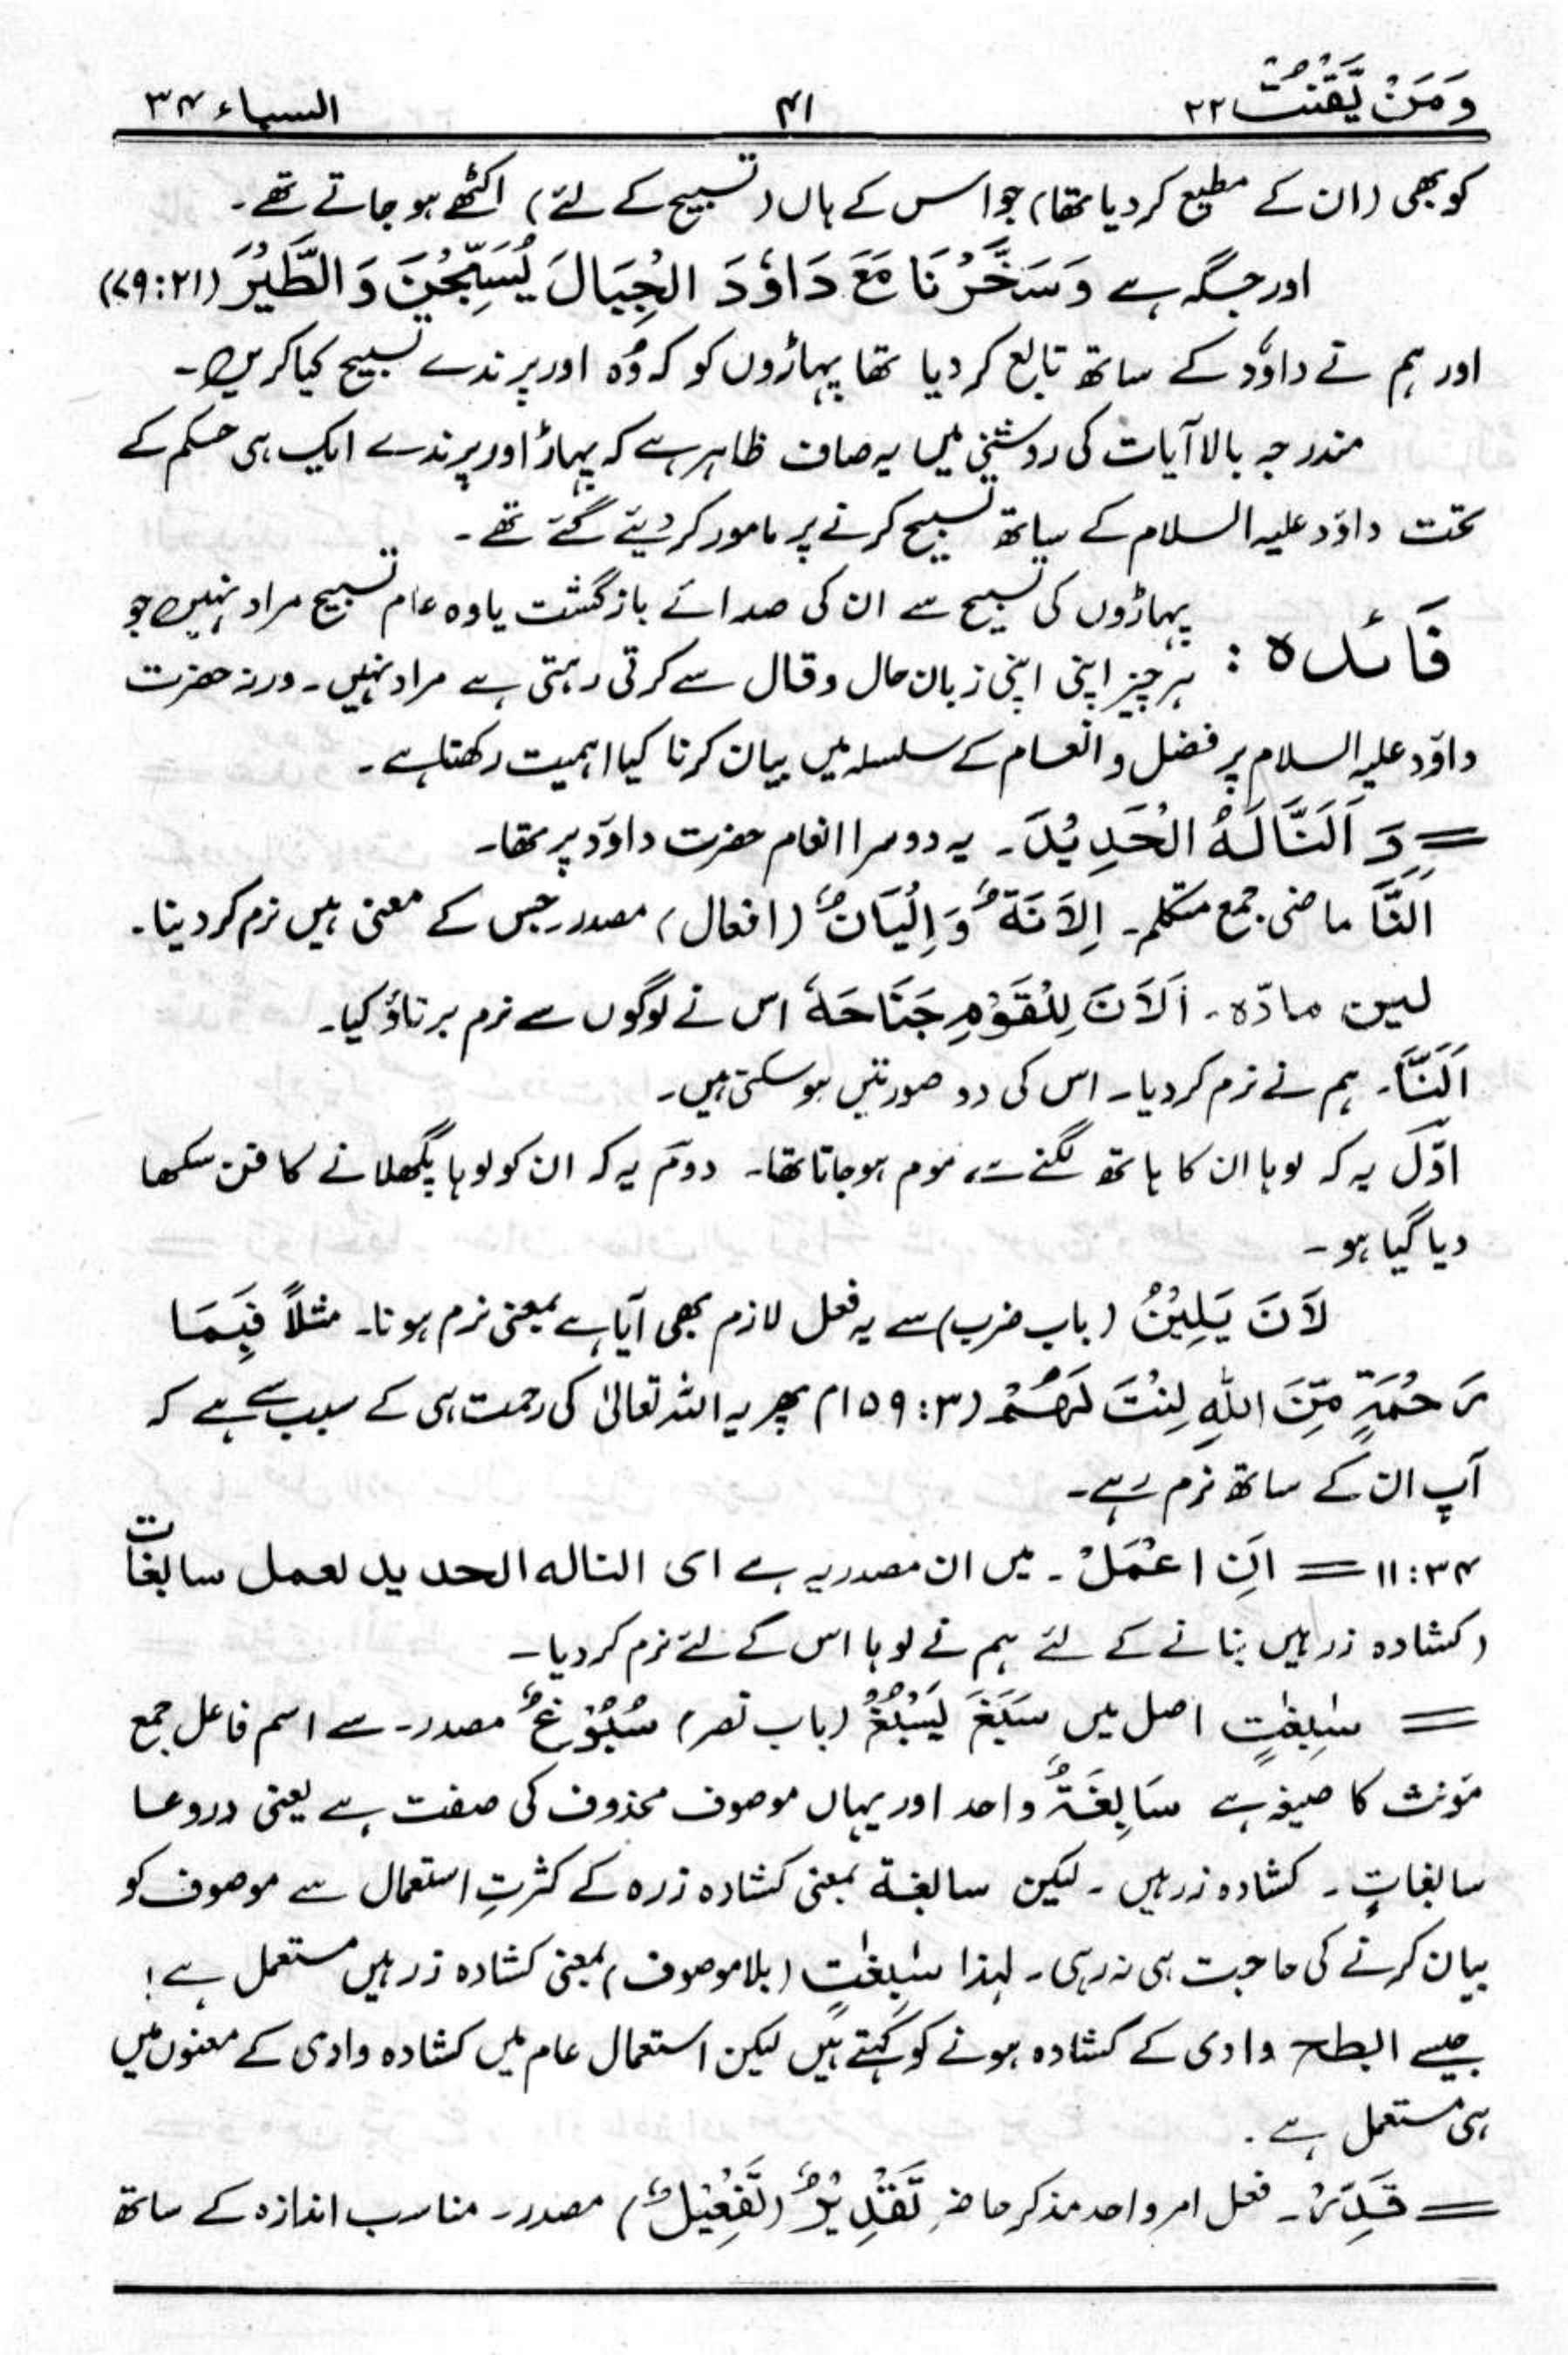 وَمَنْ يَّقْنُتْ ۲۲ ۴۱ السباء ۳۴
کو بھی (ان کے مطیع کر دیا تھا) جو اس کے ہاں (تسبیح کے لئے) اکٹھے ہو جاتے تھے۔
اور جگہ ہے وَسَخَّرْنَا مَعَ دَاوٗدَ الْجِبَالَ يُسَبِّحْنَ وَالطَّيْرَ (۲۱:۷۹)
اور ہم نے داؤد کے ساتھ تابع کر دیا تھا پہاڑوں کو کہ وُہ اور پرندے تسبیح کیا کریں۔
مندرجہ بالا آیات کی روشنی میں یہ صاف ظاہر ہے کہ پہاڑ اور پرندے ایک ہی حکم کے
تحت داؤد علیہ السلام کے ساتھ تسبیح کرنے پر مامور کر دیئے گئے تھے۔
فَائدہ : پہاڑوں کی تسبیح سے ان کی صدائے بازگشت یا وہ عام تسبیح مراد نہیں جو
ہر چیز اپنی اپنی زبان حال و قال سے کرتی رہتی ہے مراد نہیں۔ ورنہ حضرت
داؤد علیہ السلام پر فضل و انعام کے سلسلہ میں بیان کرنا کیا اہمیت رکھتا ہے۔
= وَ اَلَنَّا لَهُ الْحَدِيْدَ۔ یہ دوسرا انعام حضرت داؤد پر تھا۔
اَلَنَّا ماضی جمع متکلم۔ اِلَانَةٌ وَاِلْيَانٌ (افعال) مصدر جس کے معنی ہیں نرم کر دینا۔
لین مادّہ۔ اَلَانَ لِلْقَوْمِ جَنَاحَهٗ اس نے لوگوں سے نرم برتاؤ کیا۔
اَلَنَّا۔ ہم نے نرم کر دیا۔ اس کی دو صورتیں ہو سکتی ہیں۔
اوّل یہ کہ لوہا ان کا ہاتھ لگنے سے، موم ہو جاتا تھا۔ دوم یہ کہ ان کو لوہا پگھلانے کا فن سکھا
دیا گیا ہو۔
لَانَ يَلِيْنُ (باب ضرب) سے یہ فعل لازم بھی آیا ہے بمعنی نرم ہونا۔ مثلاً فَبِمَا
رَحْمَةٍ مِّنَ اللهِ لِنْتَ لَهُمْ (۳:۱۵۹) پھر یہ اللہ تعالیٰ کی رحمت ہی کے سبب سے ہے کہ
آپ ان کے ساتھ نرم رہے۔
۳۴:۱۱ = اَنِ اعْمَلْ۔ میں ان مصدریہ ہے ای النا له الحديد لعمل سابغات
(کشادہ زرہیں بنانے کے لئے ہم نے لوہا اس کے لئے نرم کر دیا۔
= سٰبِغٰتٍ اصل میں سَبَغَ يَسْبُغُ (باب نصر) سُبُوْغٌ مصدر۔ سے اسم فاعل جمع
مؤنث کا صیغہ ہے سَابِغَةٌ واحد اور یہاں موصوف محذوف کی صفت ہے یعنی دروعا
سابغاتٍ۔ کشادہ زرہیں۔ لیکن سابغۃ بمعنی کشادہ زرہ کے کثرتِ استعمال سے موصوف کو
بیان کرنے کی حاجت ہی نہ رہی۔ لہذا سٰبِغٰتٍ (بلا موصوف) بمعنی کشادہ زرہیں مستعمل ہے!
جیسے البطح وادی کے کشادہ ہونے کو کہتے ہیں لیکن استعمال عام میں کشادہ وادی کے معنوں میں
ہی مستعمل ہے۔
= قَدِّرْ۔ فعل امر واحد مذکر حاضر تَقْدِيْرٌ (تَفْعِيْلٌ) مصدر۔ مناسب اندازہ کے ساتھ